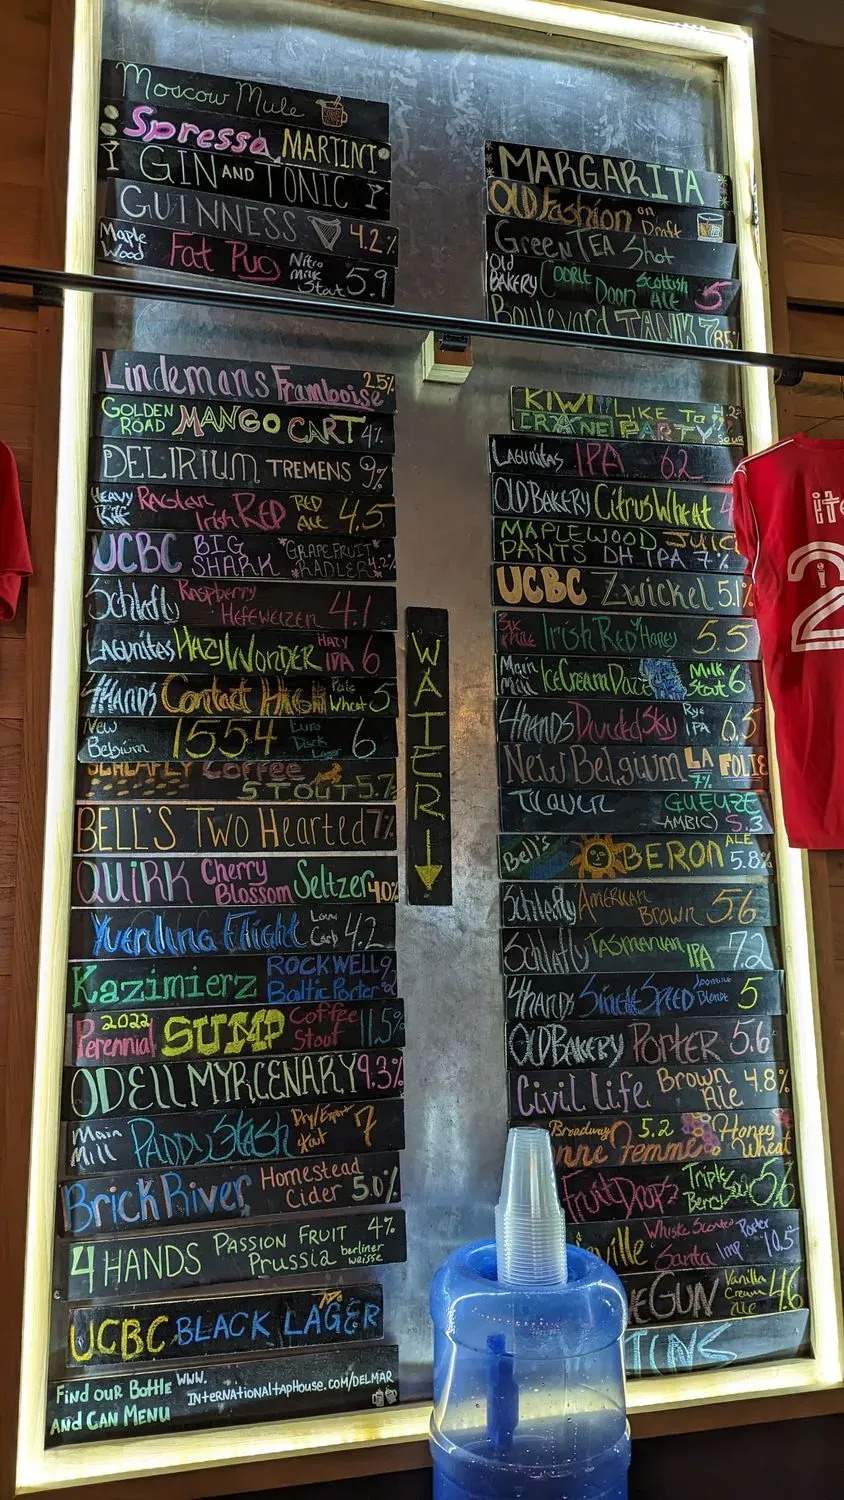 Moscow Mule
Spressa MARTINI
GIN AND TONIC
GUINNESS 4.2%
Maple Wood Fat Pug Nitro Milk Stout 5.9
Lindemans Framboise 2.5%
GOLDEN ROAD MANGO CART 4%
DELIRIUM TREMENS 9%
HEAVY Raglan Irish RED RED ALE 4.5
UCBC BIG SHARK GRAPEFRUIT RADLER 4.2%
Schlafly Raspberry Hefeweizen 4.1
LAGUNITAS HAZY WONDER HAZY IPA 6
4HANDS Contact High Pale Wheat 5
New Belgium 1554 Euro Dark Lager 6
SCHLAFLY COFFEE STOUT 5.7
BELL'S TWO HEARTED 7%
QUIRK Cherry Blossom Seltzer 4.0%
Yuengling Flight Low Carb 4.2
Kazimierz ROCKWELL Baltic Porter
2022 Perennial SUMP Coffee Stout 11.5%
ODELL MYRCENARY 9.3%
Main Mill PADDY STASH Dry/Export Stout 7
Brick River Homestead Cider 5.0%
4 HANDS PASSION FRUIT Prussia berliner weisse 4%
UCBC BLACK LAGER
FIND OUR BOTTLE AND CAN MENU WWW.INTERNATIONALTAPHOUSE.COM/DELMAR
WATER
MARGARITA
OLD Fashion on Draft
GREEN TEA Shot
Old BAKERY COOKIE Door Scottish ALE 5
Boulevard TANK 7 8.5%
KIWI LIKE TO CRANE PARTY SOUR 4.2%
LAGUNITAS IPA 6.2
OLD BAKERY Citrus Wheat
MAPLEWOOD JUICY PANTS DH IPA 7%
UCBC Zwickel 5.1%
Six Mile Irish Red Honey 5.5
Main Mill Ice Cream Dace Milk Stout 6
4hands Divided Sky Rye IPA 6.5
New Belgium LA FOLIE 7%
GUEUZE LAMBIC 5.3
Bell's OBERON ALE 5.8%
Schlafly American Brown 5.6
Schlafly TASMANIAN IPA 7.2
4hands Single Speed Blonde 5
OLD BAKERY PORTER 5.6
Civil Life Brown Ale 4.8%
Broadway 5.2 Femme Honey Wheat
Fruit Drop Triple Berry Sour 5.6
Santa Imp Porter 10.5
GUN Vanilla Cream Ale 4.6